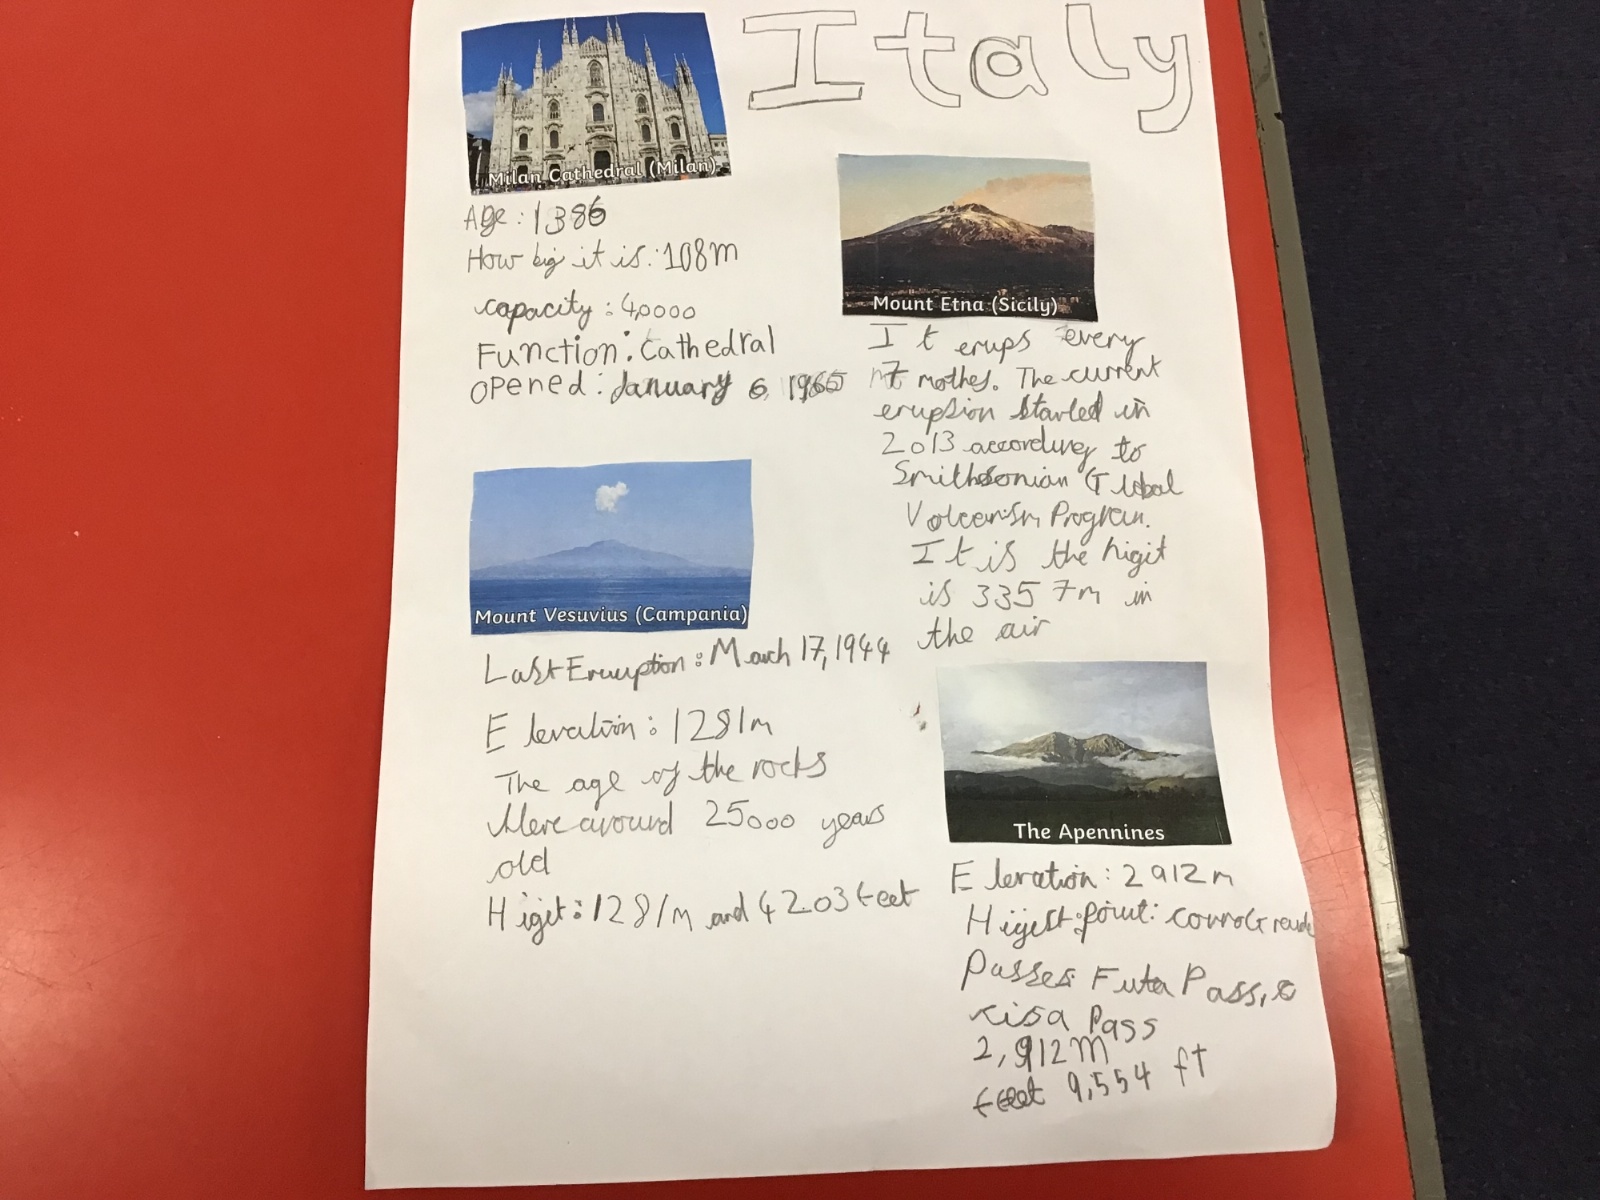 Italy
Milan Cathedral (Milan)
Age: 1386
How big it is: 108m
capacity: 40000
Function: Cathedral
opened: January 6, 1965
Mount Etna (Sicily)
It erups every
7 mothes. The current
eruption started in
2013 according to
Smithsonian Global
Volcanism Program.
It is the higit
is 3357m in
the air
Mount Vesuvius (Campania)
Last Eruuption: March 17, 1944
Elevation: 1281m
The age of the rocks
Were around 25000 years
old
Higit: 1281m and 4203 feet
The Apennines
Elevation: 2912m
Higest point: corno Grande
Passes: Futa Pass,
cisa Pass
2,912m
feet 9,554 ft